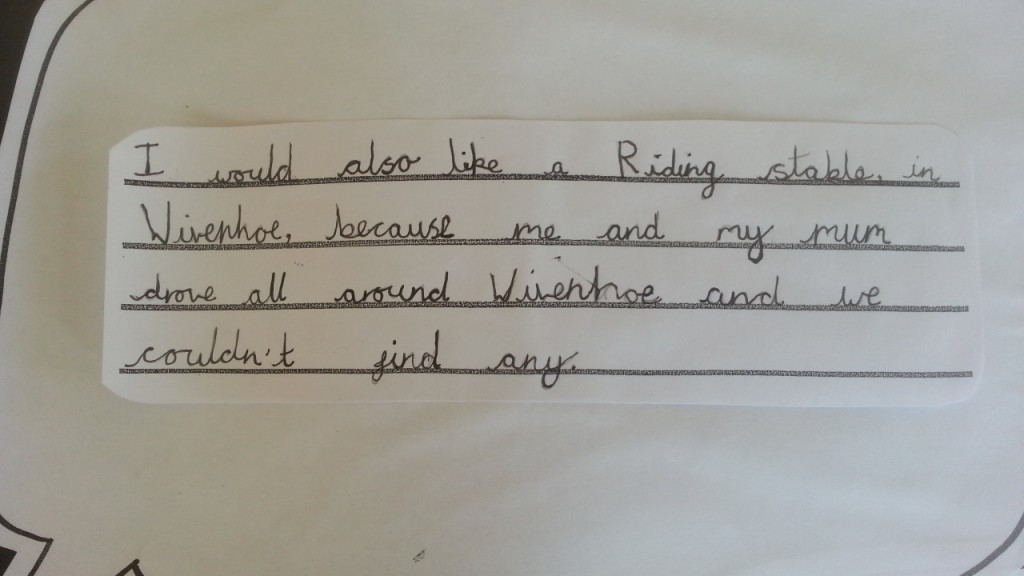 I would also like a Riding stable. in
Wivenhoe, because me and my mum
drove all around Wivenhoe and we
couldn't find any.